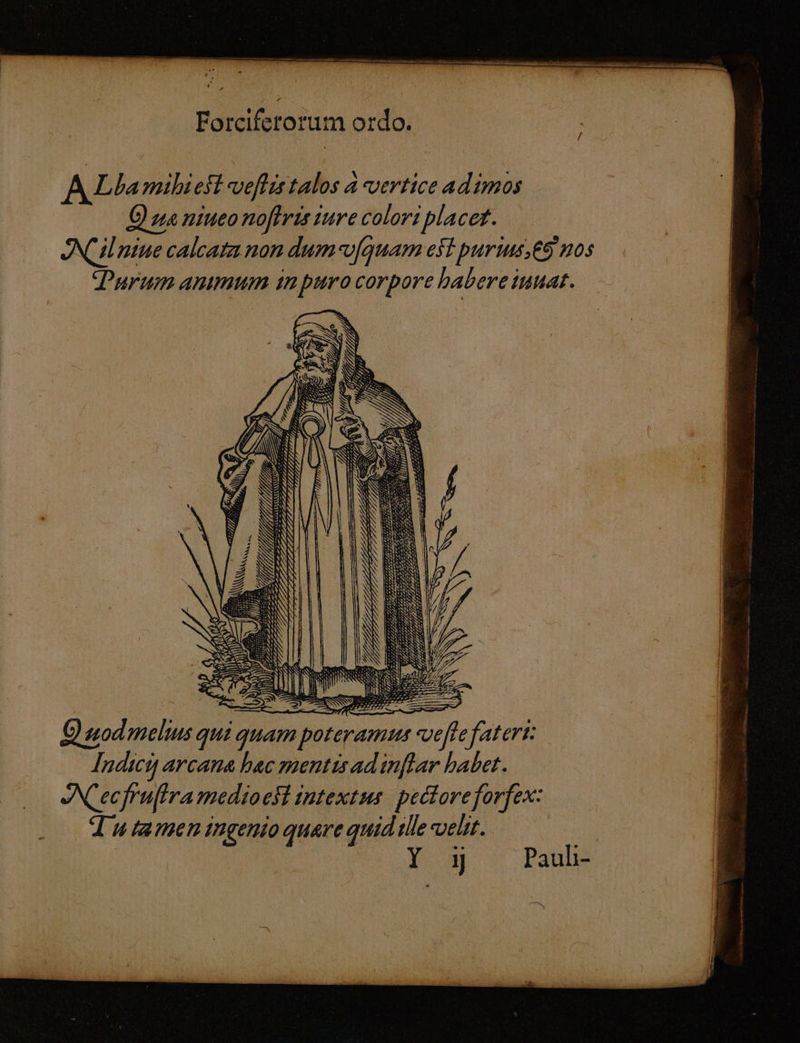 Forciferorum ordo.
ALba mihi est vestis talos à vertice ad imos
Quæ niueo nostris iure colori placet.
Nil niue calcata non dum vsquam est purius, & nos
Purum animum in puro corpore habere iuuat.
Quod melius qui quam poteramus veste fateri:
Indicij arcana hæc mentis ad instar habet.
Nec frustra medio est intextus pectore forfex:
Tu tamen ingenio quære quid ille velit.
Y ij Pauli-